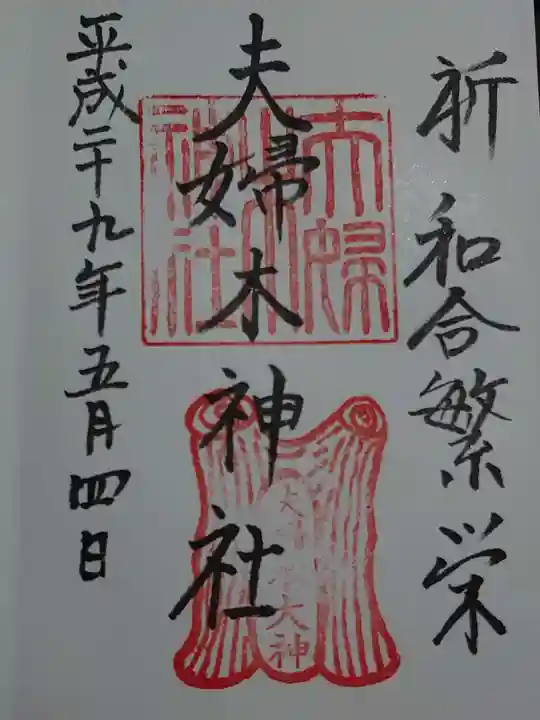 祈 和合繁栄
夫婦木神社
平成二十九年五月四日
夫婦木神社
大神